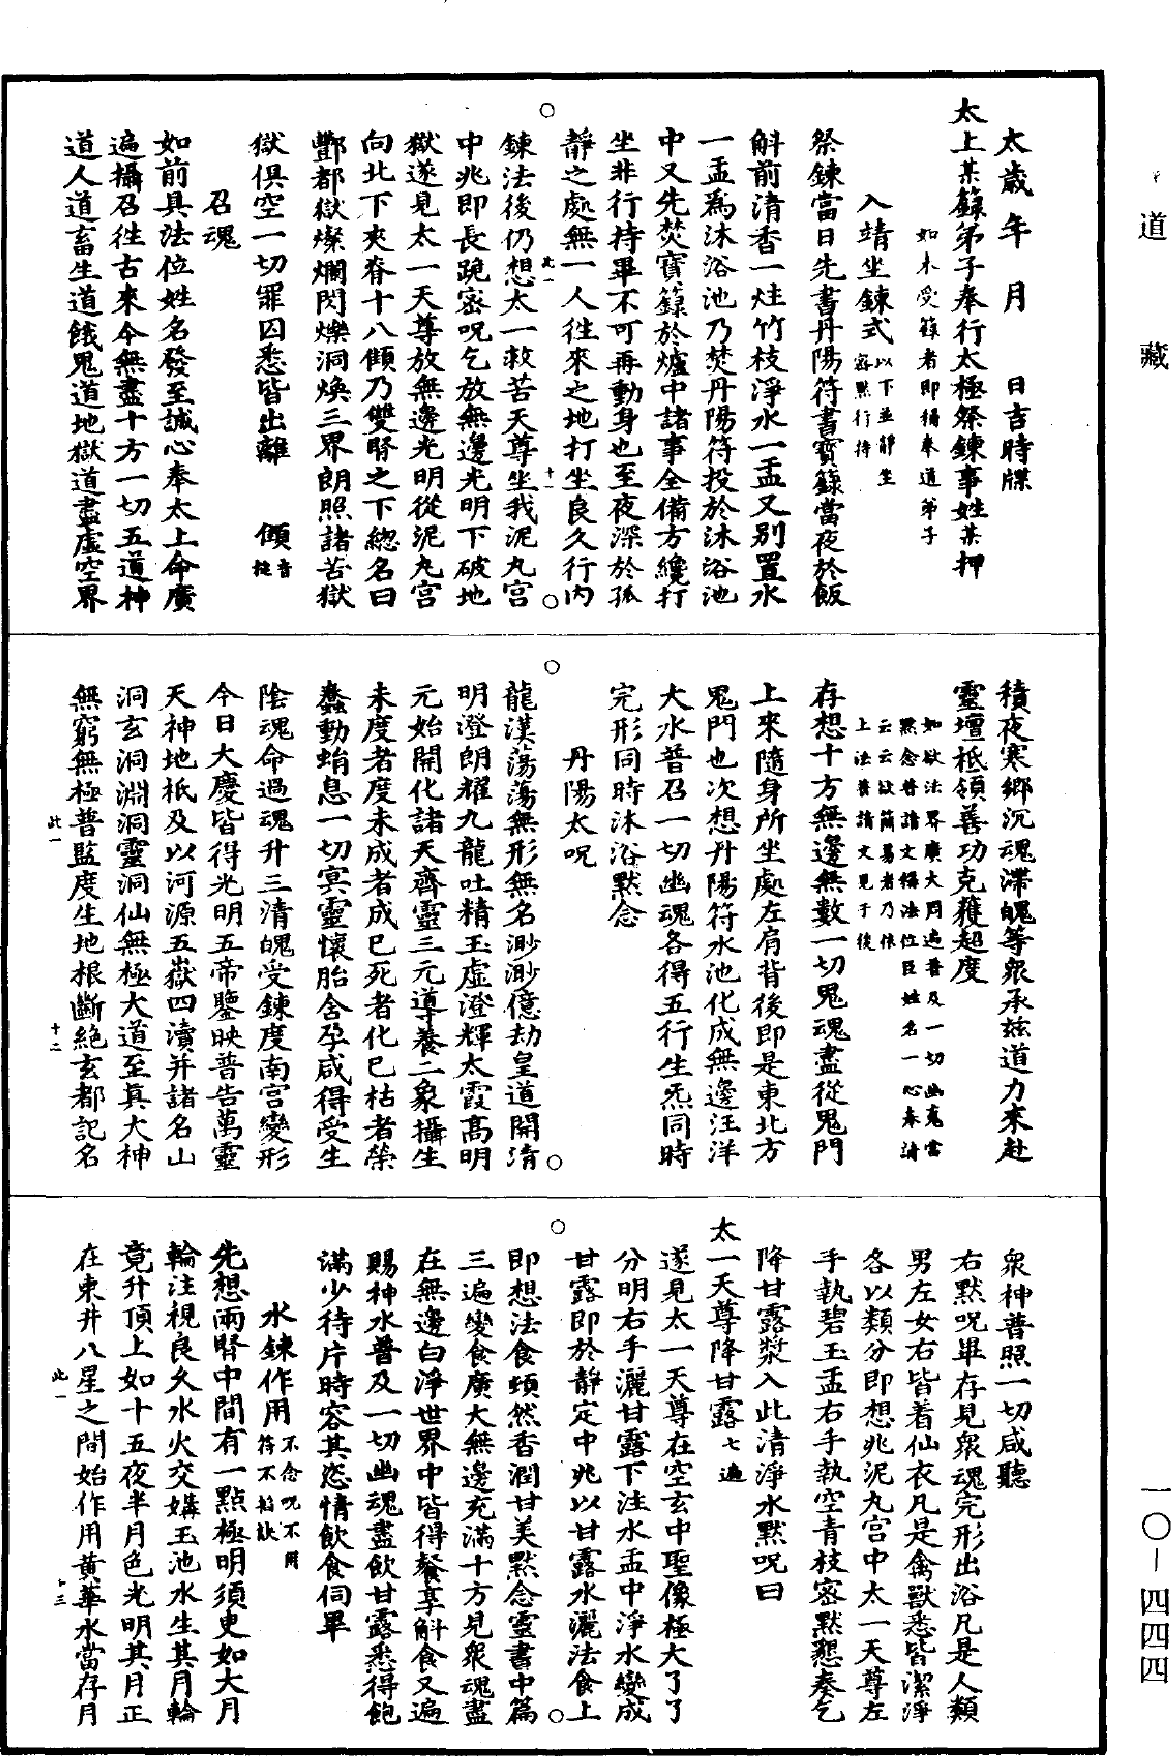 道藏
一〇—四四四
太歲 年 月 日吉時牒
太上某籙弟子奉行太極祭鍊事姓某押
如未受籙者即稱奉道弟子
入靖坐鍊式以下並靜坐密默行持
祭鍊當日先書丹陽符書寶籙當夜於飯
斛前清香一炷竹枝淨水一盂又别置水
一盂爲沐浴池乃焚丹陽符投於沐浴池
中又先焚寶籙於爐中諸事全備方纔打
坐非行持畢不可再動身也至夜深於孤
靜之處無一人往來之地打坐良久行内
鍊法後仍想太一救苦天尊坐我泥丸宫
中兆即長跪密呪乞放無邊光明下破地
獄遂見太一天尊放無邊光明從泥丸宫
向北下夾脊十八傾乃雙腎之下總名曰
酆都獄燦爛閃爍洞煥三界朗照諸苦獄
獄俱空一切罪囚悉皆出離 傾音
召魂
如前具法位姓名發至誠心奉太上命廣
遍攝召往古來今無盡十方一切五道神
道人道畜生道餓鬼道地獄道盡虚空界
積夜寒鄉沉魂滯魄等衆承兹道力來赴
靈壇祗領善功克薙超度
如欲法界廣大周遍普及一切幽鬼當
默念普請文稱法位臣姓名一心奉請
云云欲簡易者乃依
上法普請文見于後
存想十方無邊無數一切鬼魂盡從鬼門
上來隨身所坐處左肩背後即是東北方
鬼門也次想丹陽符水池化成無邊汪洋
大水普召一切幽魂各得五行生炁同時
完形同時沐浴默念
丹陽太呪
龍漢蕩蕩無形無名渺渺億劫皇道開清
明澄朗耀九龍吐精玉虚澄輝太霞高明
元始開化諸天齊靈三元導養二象攝生
未度者度未成者成已死者化已枯者榮
蠢動蛸息一切冥靈懷胎含孕咸得受生
陰魂命過魂升三清魄受鍊度南宫變形
今日大慶皆得光明五帝鑒映普告萬靈
天神地祇及以河源五嶽四瀆并諸名山
洞玄洞淵洞靈洞仙無極大道至真大神
無窮無極普監度生地根斷絶玄都記名
衆神普照一切咸聽
右默呪畢存見衆魂完形出浴凡是人類
男左女右皆着仙衣凡是禽獸悉皆潔淨
各以類分即想兆泥丸宫中太一天尊左
手執碧玉盂右手執空青枝密默懇奏乞
降甘露漿入此清淨水默呪曰
太一天尊降甘露七遍
遂見太一天尊在空玄中聖像極大了了
分明右手灑甘露下注水盂中淨水變成
甘露即於靜定中兆以甘露水灑法食上
即想法食頓然香潤甘美默念靈書中篇
三遍變食廣大無邊充滿十方見衆魂盡
在無邊白淨世界中皆得餐享斛食又遍
賜神水普及一切幽魂盡飲甘露悉得飽
滿少待片時容其恣情飲食伺畢
水鍊作用不念呪不用符不掐訣
先想兩腎中間有一點極明須臾如大月
輪注視良久水火交媾玉池水生其月輪
竟升頂上如十五夜半月色光明其月正
在東井八星之間始作用黄華水當存月
此一
十一
此一
十二
此一
十三